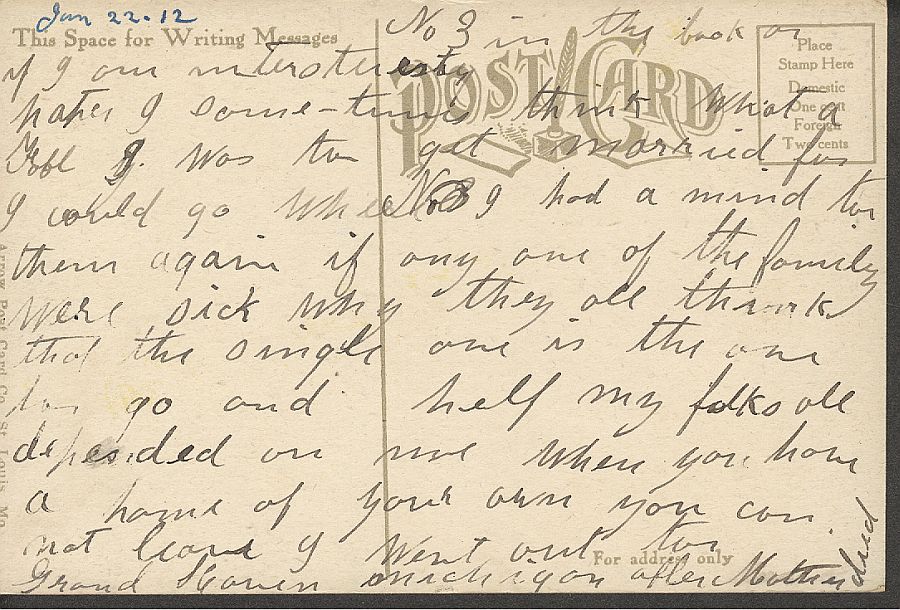 Jan 22-12
This Space for Writing Messages
No 3 in the book or
Place
Stamp Here
Domestic
One cent
Foreign
Two cents
POST CARD
if I am intersteresty
paper I some-time think what a
Fool I was to get married for
I could go when No 3 I had a mind to
them again if any one of the family
were sick why they all think
that the single one is the one
to go and help my folks all
depended on me when you have
a home of your own you can
not leave I went out to
For address only
Grand Haven michigan after Mother died
Arrow Post Card Co St. Louis Mo